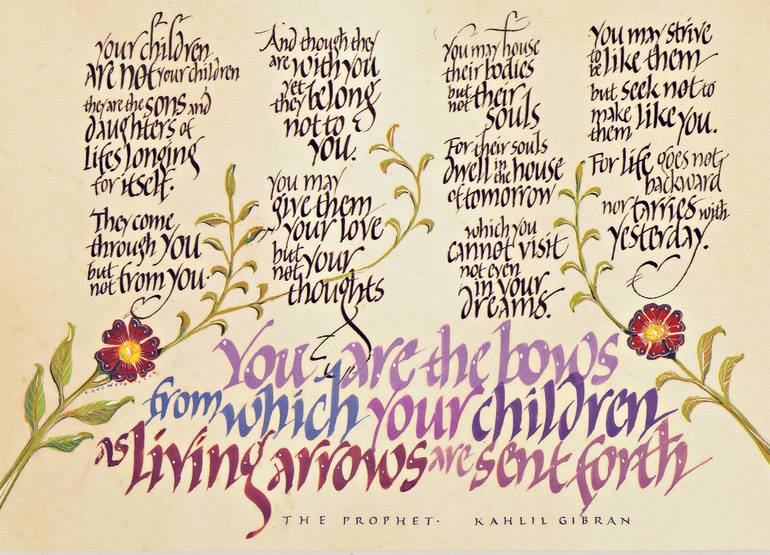 your children
are not your children
they are the sons and
daughters of
life's longing
for itself.
They come
through you
but
not from you.
And though they
are with you
yet
they belong
not to
you.
you may
give them
your love
but
not your
thoughts
You may house
their bodies
but
not their
souls
For their souls
dwell in the house
of tomorrow
which you
cannot visit
not even
in your
dreams.
You may strive
to be like them
but seek not to
make
them like you.
For life goes not
backward
nor tarries with
yesterday.
You are the bows
from which your children
as living arrows are sent forth
THE PROPHET· KAHLIL GIBRAN